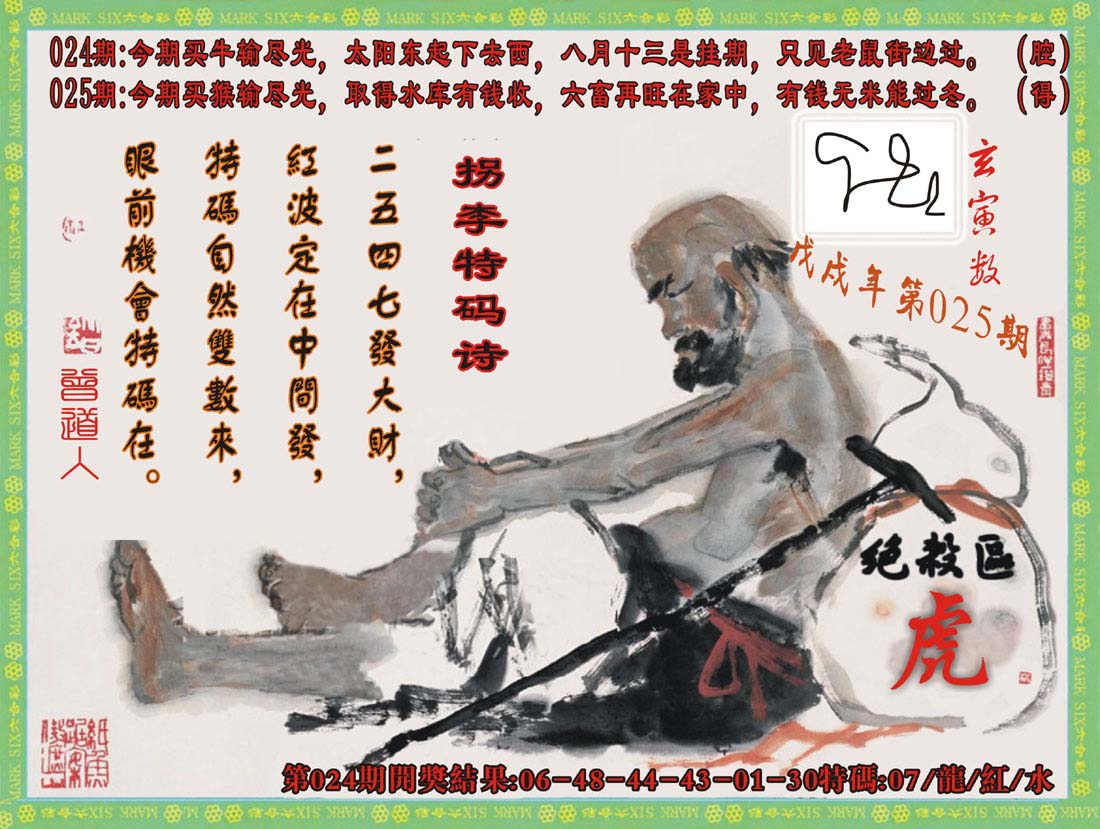 MARK SIX六合彩
024期:今期买牛输尽光，太阳东起下去西，八月十三是挂期，只见老鼠街边过。（腔）
025期:今期买猴输尽光，取得水库有钱收，六畜再旺在家中，有钱无米能过冬。（得）
玄寅数
戊戌年第025期
拐李特码诗
二五四七發大財，
紅波定在中間發，
特碼自然雙數來，
眼前機會特碼在。
曾道人
绝殺區
虎
第024期開獎結果:06-48-44-43-01-30特碼:07/龍/紅/水